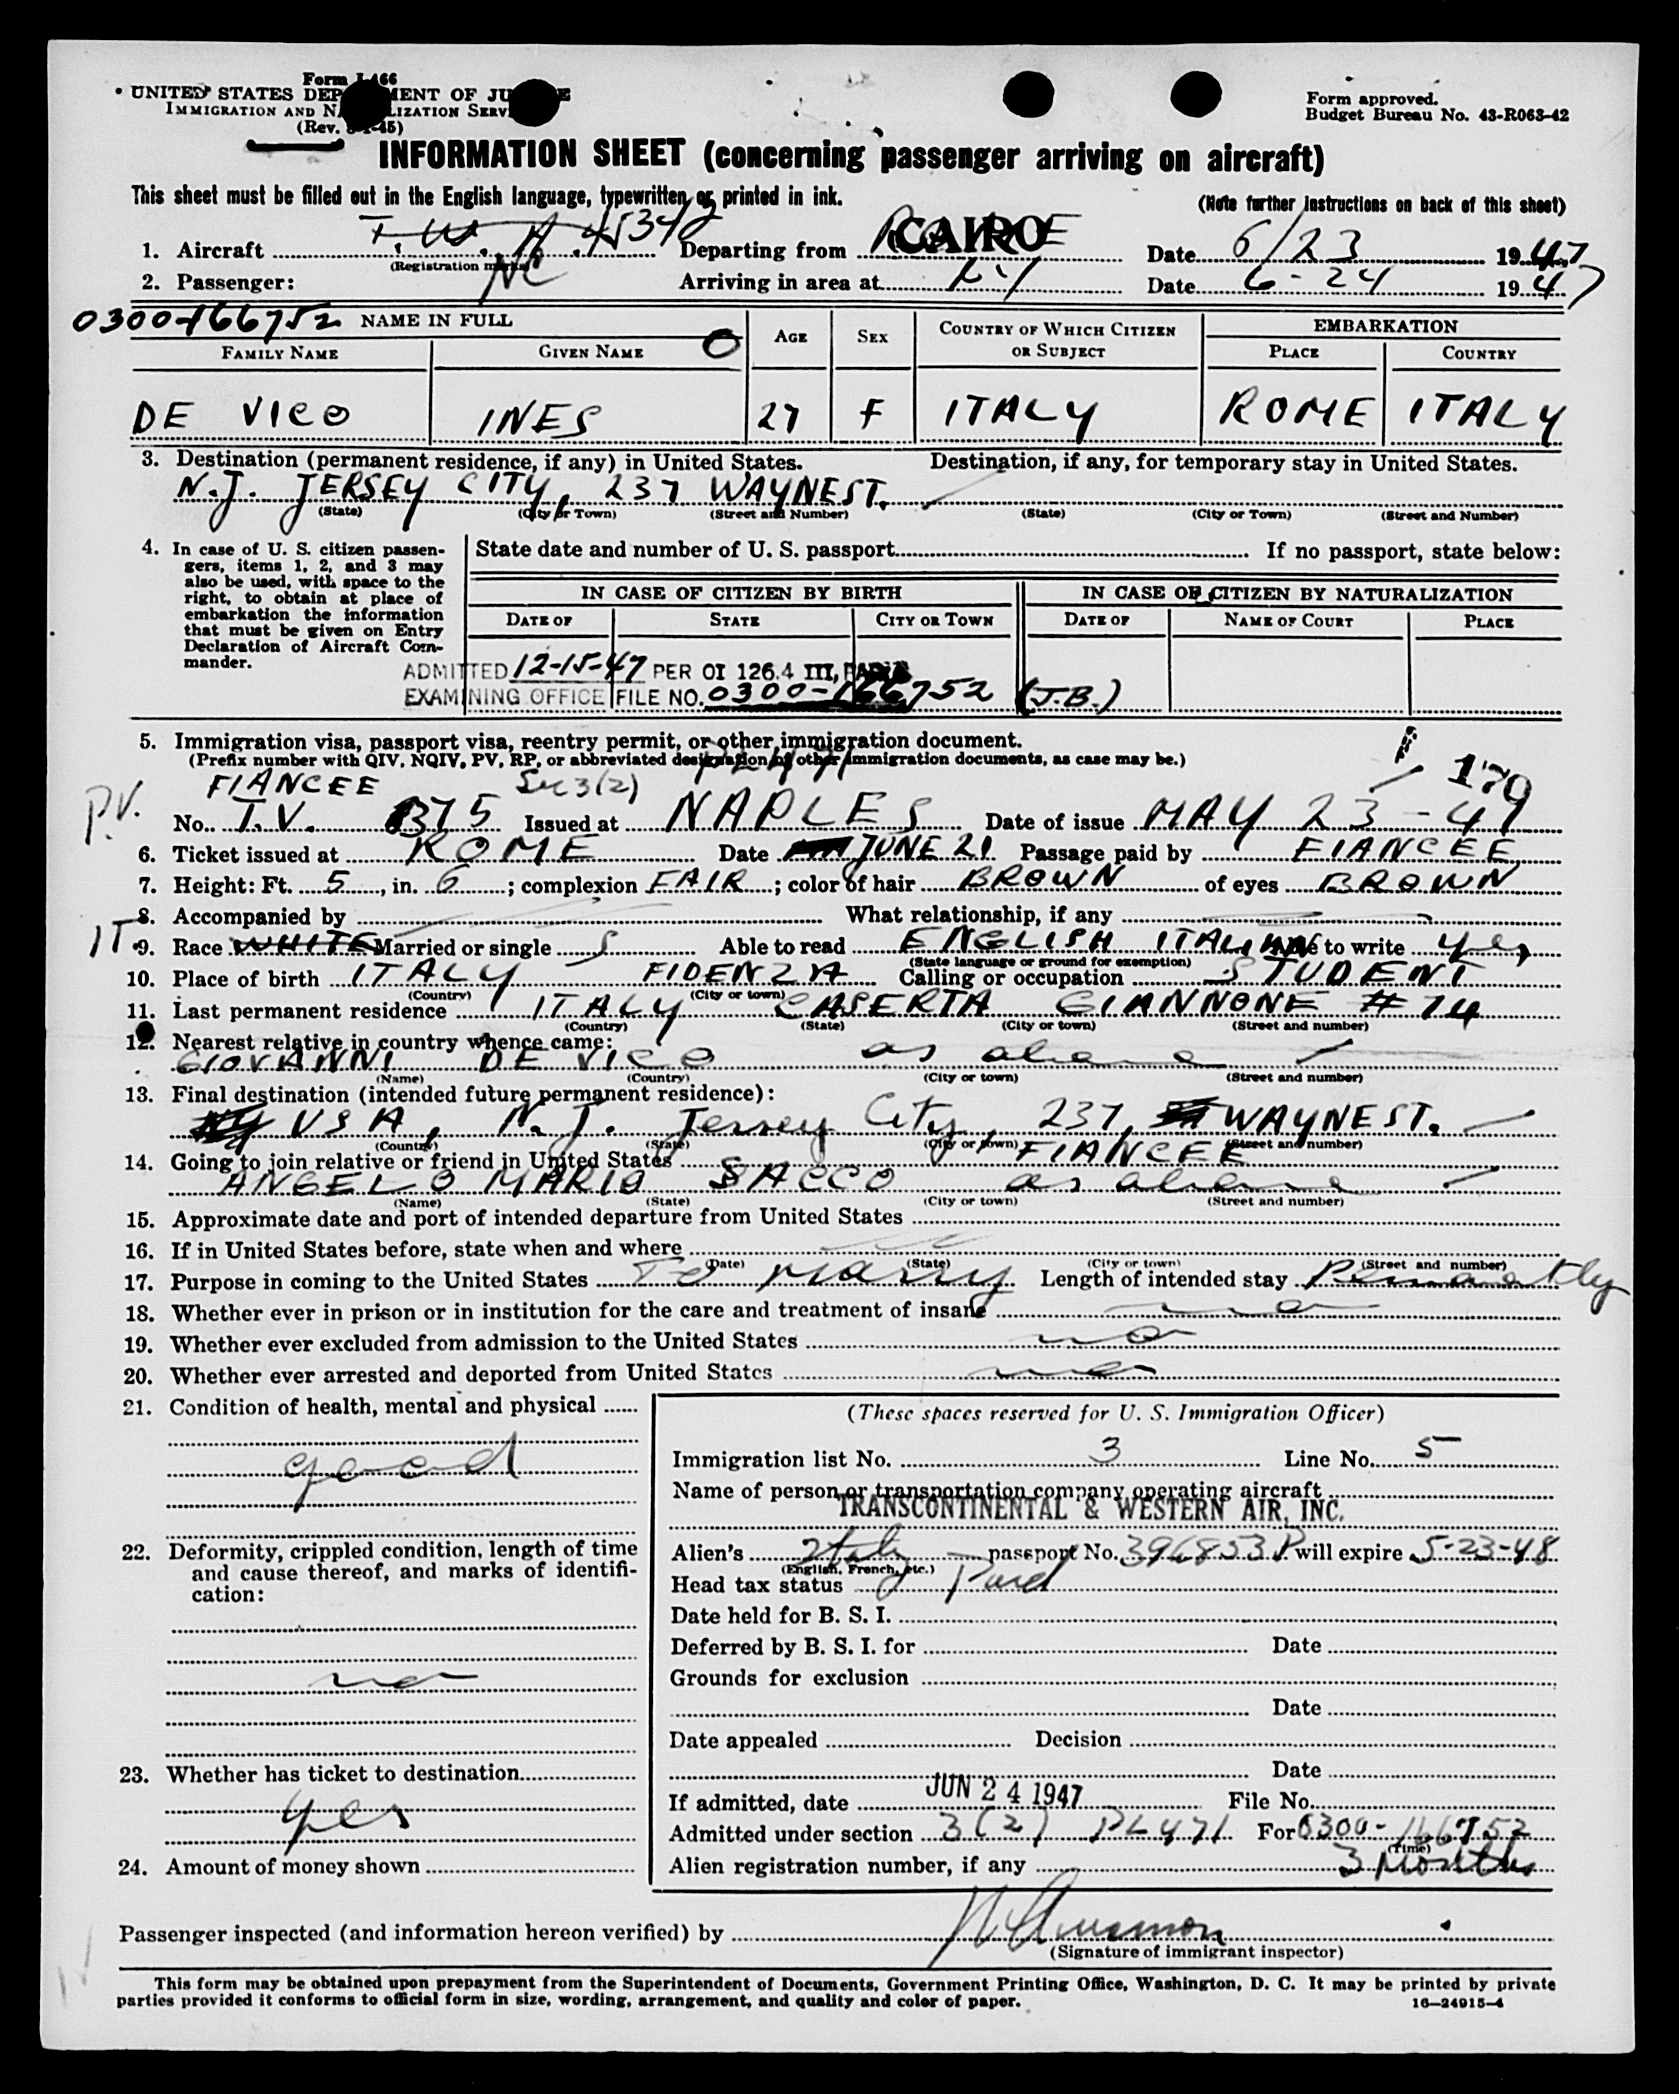 Form I-466
UNITED STATES DEPARTMENT OF JUSTICE
IMMIGRATION AND NATURALIZATION SERVICE
(Rev. 45)
Form approved.
Budget Bureau No. 43-R063-42
INFORMATION SHEET (concerning passenger arriving on aircraft)
This sheet must be filled out in the English language, typewritten or printed in ink.
(Note further instructions on back of this sheet)
1. Aircraft T.W.A. 45342 Departing from ROME CAIRO Date 6/23 1947
(Registration marks)
2. Passenger: NC Arriving in area at NY Date 6-24 1947
0300-166752 NAME IN FULL O AGE SEX COUNTRY OF WHICH CITIZEN OR SUBJECT EMBARKATION
FAMILY NAME GIVEN NAME PLACE COUNTRY
DE VICO INES 27 F ITALY ROME ITALY
3. Destination (permanent residence, if any) in United States. Destination, if any, for temporary stay in United States.
N.J. JERSEY CITY, 237 WAYNE ST.
(State) (City or Town) (Street and Number) (State) (City or Town) (Street and Number)
4. In case of U. S. citizen passengers, items 1, 2, and 3 may also be used, with space to the right, to obtain at place of embarkation the information that must be given on Entry Declaration of Aircraft Commander.
State date and number of U. S. passport If no passport, state below:
IN CASE OF CITIZEN BY BIRTH IN CASE OF CITIZEN BY NATURALIZATION
DATE OF STATE CITY OR TOWN DATE OF NAME OF COURT PLACE
ADMITTED 12-15-47 PER OI 126.4 III, PARIS
EXAMINING OFFICE FILE NO. 0300-166752 (J.B.)
5. Immigration visa, passport visa, reentry permit, or other immigration document.
(Prefix number with QIV, NQIV, PV, RP, or abbreviated designation of other immigration documents, as case may be.)
PL 471
170
P.V. FIANCEE Sec 3(2)
No. T.V. 1375 Issued at NAPLES Date of issue MAY 23-47
6. Ticket issued at ROME Date JUNE 21 Passage paid by FIANCEE
7. Height: Ft. 5, in. 6; complexion FAIR; color of hair BROWN of eyes BROWN
8. Accompanied by What relationship, if any
IT. 9. Race WHITE Married or single S Able to read ENGLISH ITALIAN Able to write yes
(State language or ground for exemption)
10. Place of birth ITALY FIDENZA Calling or occupation STUDENT
(Country) (City or town)
11. Last permanent residence ITALY CASERTA GIANNONE # 74
(Country) (State) (City or town) (Street and number)
12. Nearest relative in country whence came:
GIOVANNI DE VICO as above
(Name) (Country) (City or town) (Street and number)
13. Final destination (intended future permanent residence):
USA, N.J. Jersey City, 237, WAYNE ST.
(Country) (State) (City or town) (Street and number)
14. Going to join relative or friend in United States FIANCEE
ANGELO MARIO SACCO as above
(Name) (State) (City or town) (Street and number)
15. Approximate date and port of intended departure from United States
16. If in United States before, state when and where
(Date) (State) (City or town) (Street and number)
17. Purpose in coming to the United States To Marry Length of intended stay Permanently
18. Whether ever in prison or in institution for the care and treatment of insane no
19. Whether ever excluded from admission to the United States no
20. Whether ever arrested and deported from United States no
21. Condition of health, mental and physical
good
22. Deformity, crippled condition, length of time and cause thereof, and marks of identification:
no
23. Whether has ticket to destination
yes
24. Amount of money shown
(These spaces reserved for U. S. Immigration Officer)
Immigration list No. 3 Line No. 5
Name of person or transportation company operating aircraft
TRANSCONTINENTAL & WESTERN AIR, INC.
Alien's Italy passport No. 396853P will expire 5-23-48
(English, French, etc.)
Head tax status Paid
Date held for B. S. I.
Deferred by B. S. I. for Date
Grounds for exclusion
Date
Date appealed Decision
Date
If admitted, date JUN 24 1947 File No.
Admitted under section 3(2) PL 471 For 0300-166752
(Time)
Alien registration number, if any 3 Months
Passenger inspected (and information hereon verified) by
(Signature of immigrant inspector)
This form may be obtained upon prepayment from the Superintendent of Documents, Government Printing Office, Washington, D. C. It may be printed by private
parties provided it conforms to official form in size, wording, arrangement, and quality and color of paper.
16—24915-4